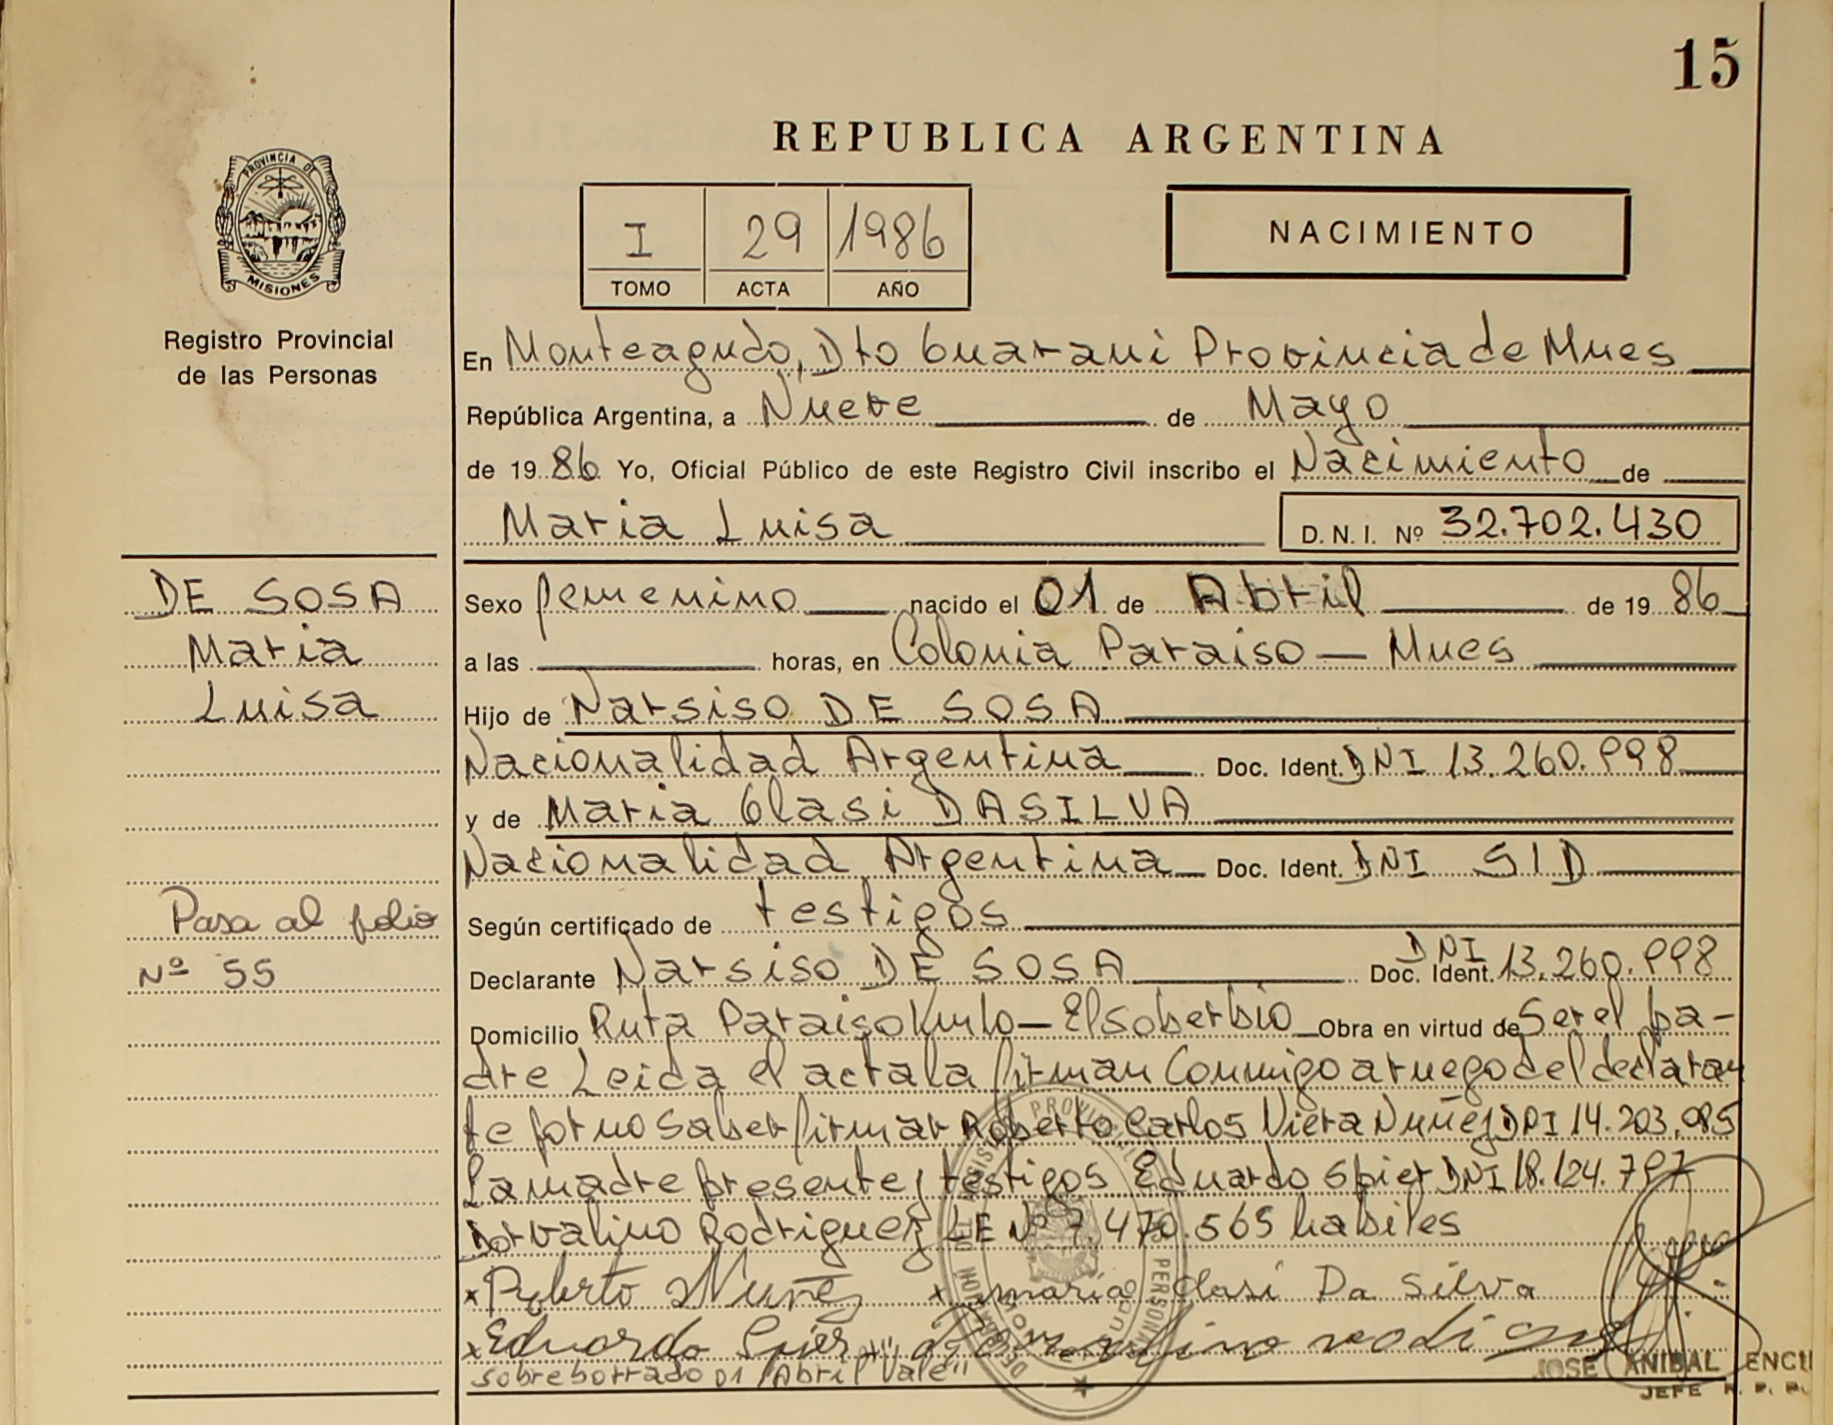 15
REPUBLICA ARGENTINA
PROVINCIA DE
MISIONES
Registro Provincial
de las Personas
I 29 1986
TOMO ACTA AÑO
NACIMIENTO
En Monteagudo, Dto Guarani Provincia de Mnes
República Argentina, a Nueve de Mayo
de 1986 Yo, Oficial Público de este Registro Civil inscribo el Nacimiento de
Maria Luisa D. N. I. Nº 32.702.430
DE SOSA
Maria
Luisa
Sexo femenino nacido el 01 de Abril de 1986
a las horas, en Colonia Paraiso — Mnes
Hijo de Narsiso DE SOSA
Nacionalidad Argentina Doc. Ident. DNI 13.260.998
y de Maria Glasi DASILVA
Nacionalidad Argentina Doc. Ident. DNI SID
Pasa al folio
Nº 55
Según certificado de testigos
Declarante Narsiso DE SOSA Doc. Ident. DNI 13.260.998
Domicilio Ruta Paraiso Km 10 — El soberbio Obra en virtud de Ser el pa-
dre Leida el acta la firman Conmigo a ruego del declaran
te por no saber firmar Roberto Carlos Viera Nuñez DNI 14.203.985
La madre presente y testigos Eduardo Spier DNI 18.124.797
Dorvalino Rodriguez LE Nº 7.470.565 habiles
x Roberto Nuñez x maria Glasi Da Silva
x Eduardo Spier
sobreborrado 01 Abril Vale"
JOSE ANIBAL
JEFE R. P. P.